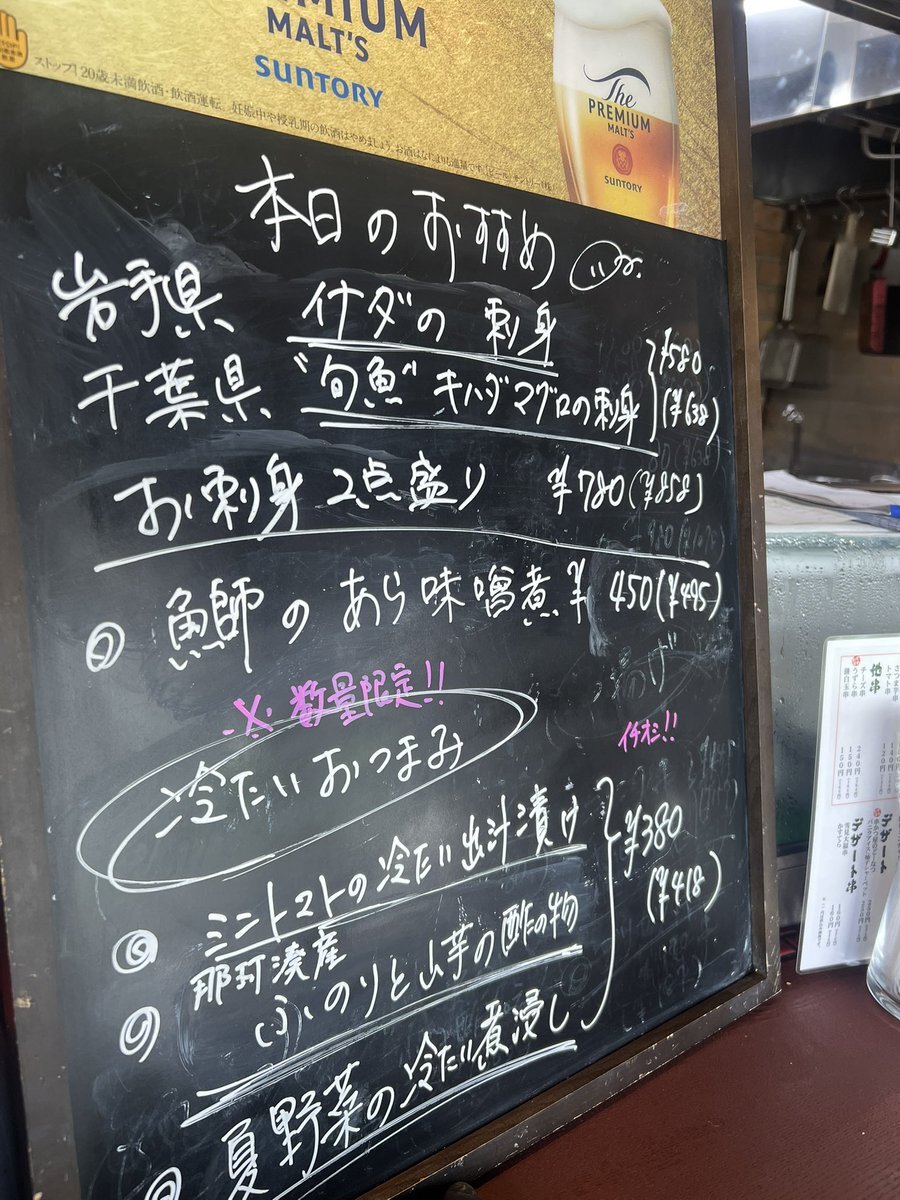 PREMIUM
MALT'S
SUNTORY
ストップ!20歳未満飲酒・飲酒運転。妊娠中や授乳期の飲酒はやめましょう。
The
PREMIUM
MALT'S
SUNTORY
本日のおすすめ
岩手県 イナダの刺身
千葉県 "旬魚" キハダマグロの刺身
¥580
(¥638)
お刺身2点盛り ¥780(¥858)
魚師のあら味噌煮 ¥450(¥495)
※数量限定!!
冷たいおつまみ
イチオシ!!
ミニトマトの冷たい出汁漬け
那珂湊産
ふのりと山芋の酢の物
夏野菜の冷たい煮浸し
¥380
(¥418)
さつま芋串
トマト串
チーズ串
うずら串
デザート
デザート串